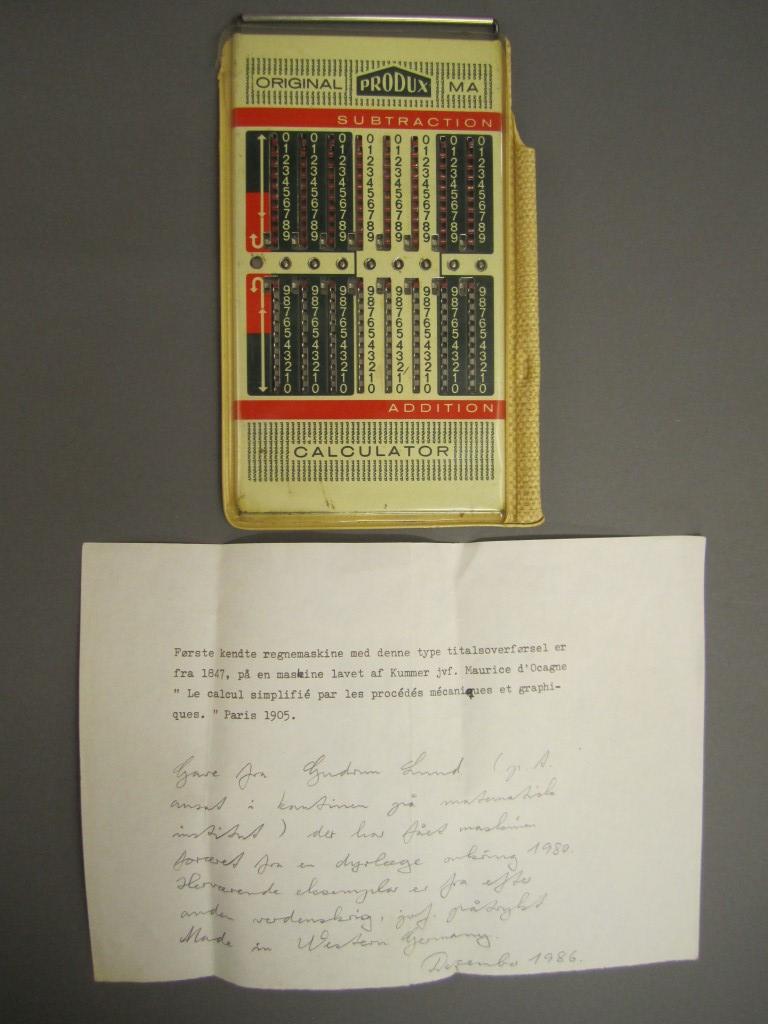 ORIGINAL PRODUX MA
SUBTRACTION
0 0 0 0 0 0 0 0
1 1 1 1 1 1 1 1
2 2 2 2 2 2 2 2
3 3 3 3 3 3 3 3
4 4 4 4 4 4 4 4
5 5 5 5 5 5 5 5
6 6 6 6 6 6 6 6
7 7 7 7 7 7 7 7
8 8 8 8 8 8 8 8
9 9 9 9 9 9 9 9
9 9 9 9 9 9 9
8 8 8 8 8 8 8 8
7 7 7 7 7 7 7 7
6 6 6 6 6 6 6 6
5 5 5 5 5 5 5 5
4 4 4 4 4 4 4 4
3 3 3 3 3 3 3 3
2 2 2 2 2 2 2 2
1 1 1 1 1 1 1 1
0 0 0 0 0 0 0 0
ADDITION
CALCULATOR
Første kendte regnemaskine med denne type titalsoverførsel er
fra 1847, på en maskine lavet af Kummer jvf. Maurice d'Ocagne
" Le calcul simplifié par les procédés mécaniques et graphi-
ques. " Paris 1905.
Gave fra Gudrun Lund (p.t.
ansat i kantinen på matematisk
institut) der har fået maskinen
foræret fra en dyrlæge omkring 1980.
Herværende eksemplar er fra efter
anden verdenskrig, jvf. påtrykt
Made in Western Germany.
Dezember 1986.